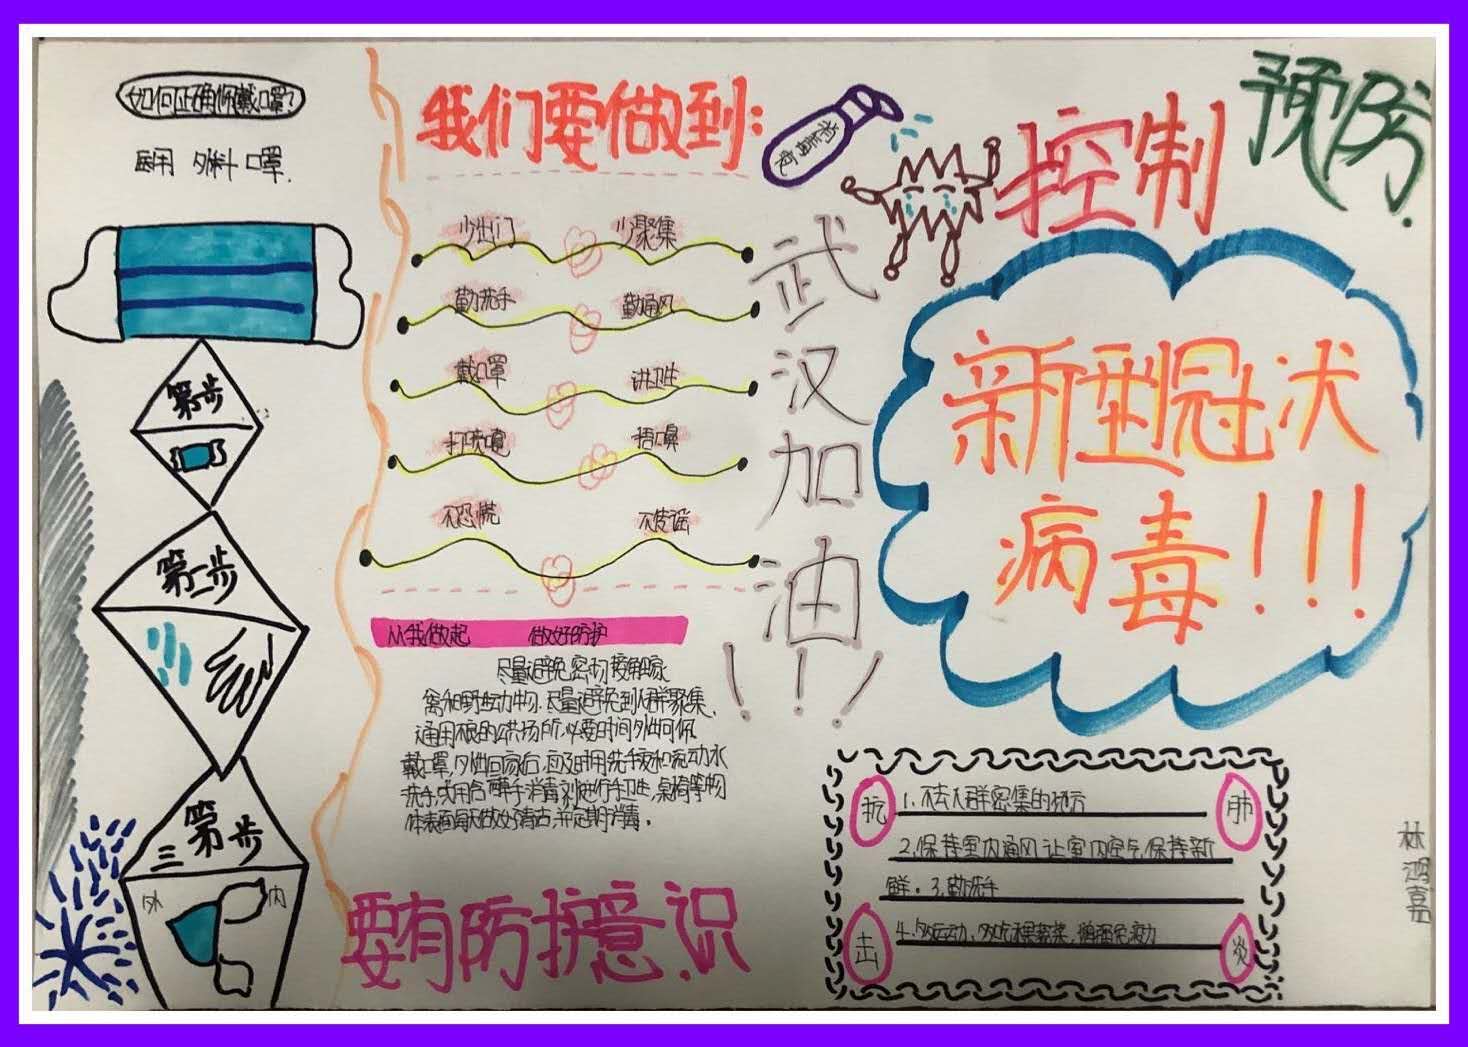 如何正确佩戴口罩?
医用 外科 口罩.
第一步
第二步
第三步
外 内
我们要做到:
少出门 少聚集
勤洗手 勤通风
戴口罩 讲卫生
打喷嚏 捂口鼻
不恐慌 不传谣
从我做起 做好防护
尽量避免密切接触家
禽和野生动物.尽量避免到人群聚集、
通风不良的公共场所,必要时间外出可佩
戴口罩,外出回家后,应及时用洗手液和流动水
洗手,或用含 手消毒剂进行手卫生,桌椅等物
体表面每天做好清洁,并定期消毒。
要有防护意识
武汉加油!!!
控制
预防
新型冠状
病毒!!!
抗击肺炎
1.不去人群密集的地方
2.保持室内通风,让室内空气保持新
鲜。3.勤洗手
4.多运动、多吃水果蔬菜,增强免疫力
林鸿嘉